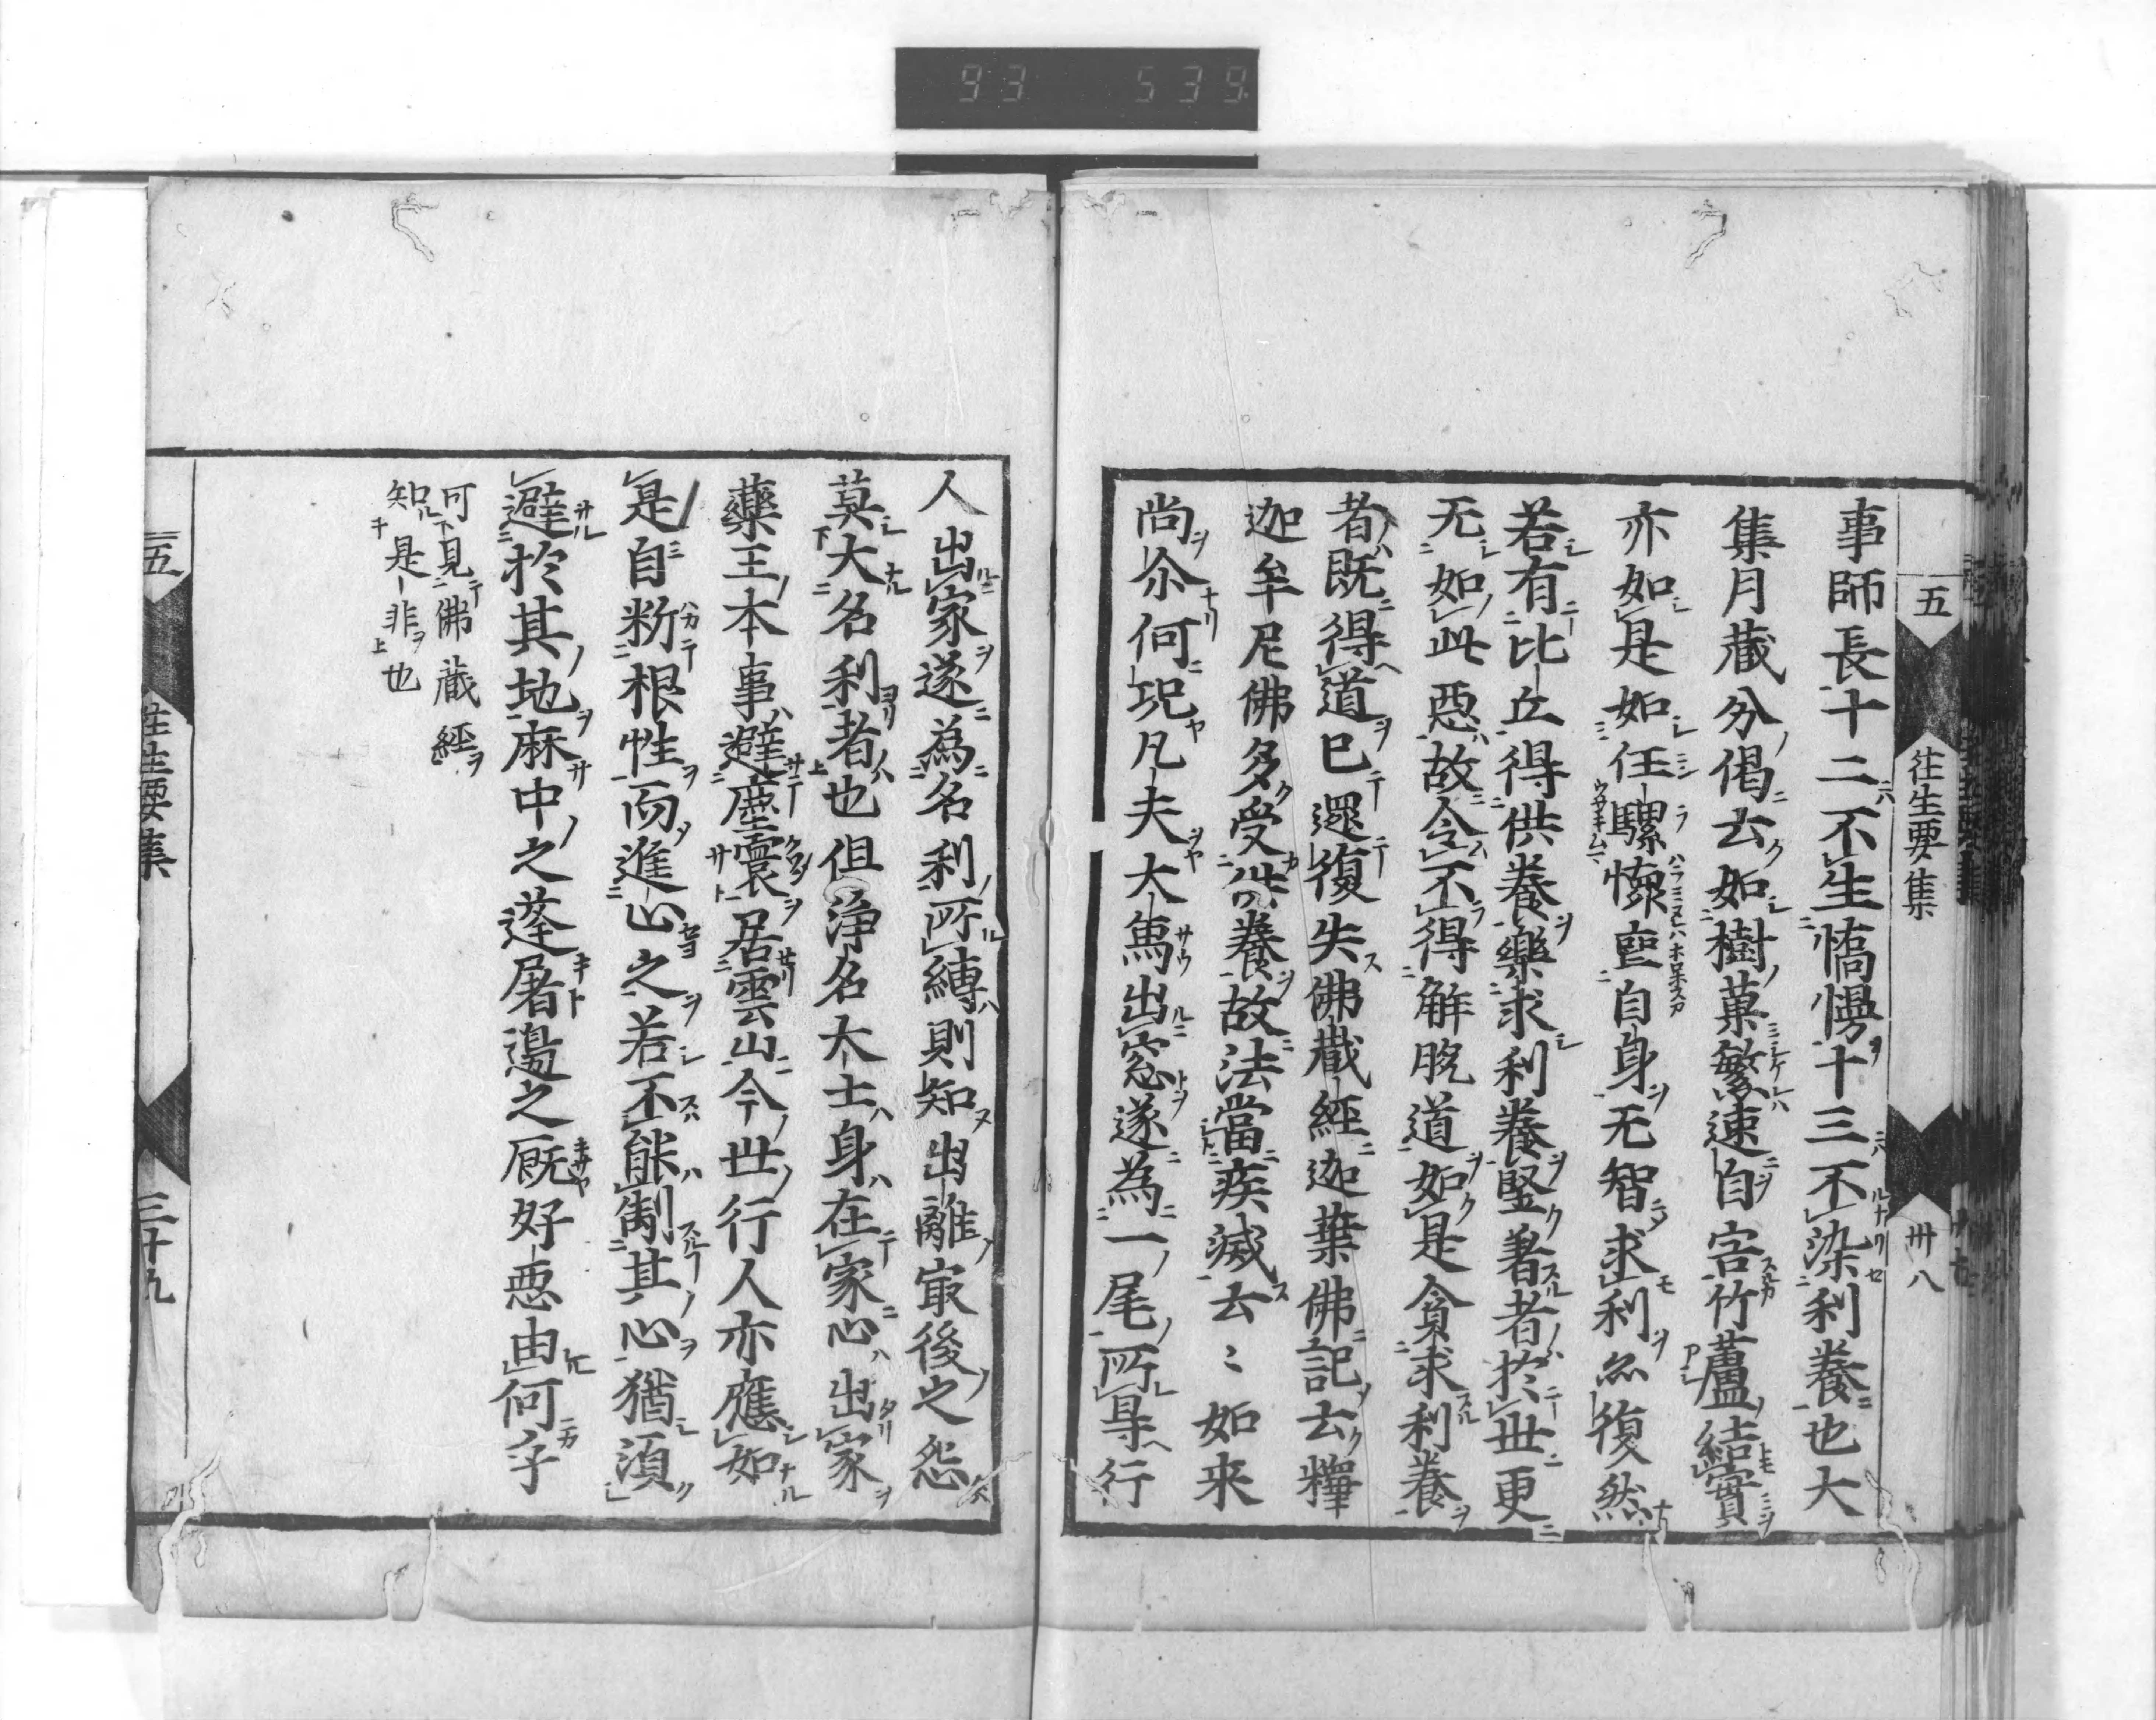 93 539
五 往生要集 卅八
事師長十二不生憍慢十三不染利養也大
集月蔵分偈云如樹菓繁速自害竹蘆結實
亦如是如任騾懷𡉏自身无智求利亦復然
若有比丘得供養樂求利養堅著者於世更
无如此惡故令不得解脫道如是貪求利養
者既得道已還復失佛蔵経迦葉佛記云釋
迦牟尼佛多受供養故法當疾滅云〻如来
尚尒何况凡夫大象出窓遂為一尾所㝵行
人出家遂爲名利所縛則知出離㝡後之怨
莫大名利者也但淨名大士身在家心出家
藥王本事避塵寰居雲山今世行人亦應如
是自料根性而進止之若不能制其心猶須
避於其地麻中之蓬屠邊之厩好惡由何乎
可見佛蔵経
知是非也
五 往生要集 三十九